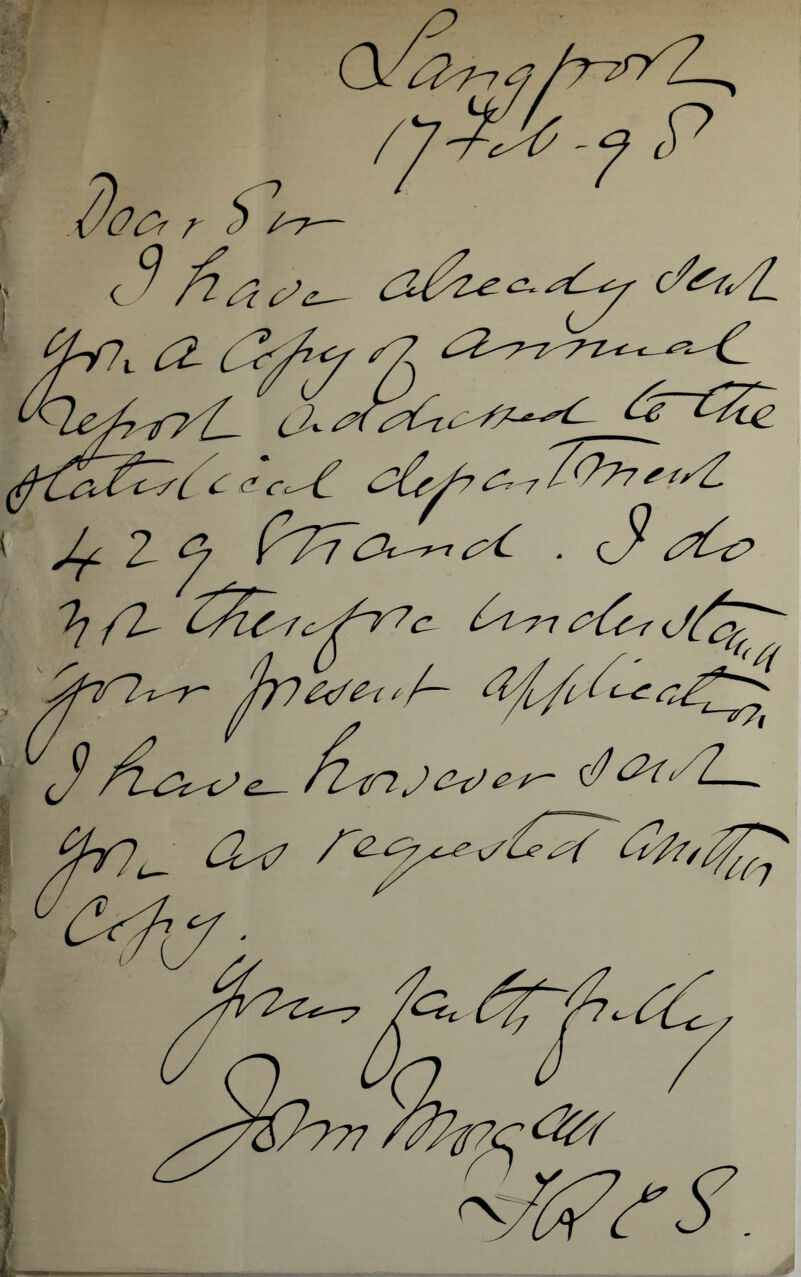 Langport
17 Feb - 98
Dear Sir
I have already sent
you a Copy of Annual
report addressed to the
statistical department
429 Strand . I do
not therefore understand
your present application
I have however sent
you as requested another
Copy.
Yours faithfully
John Morgan
FRCS.